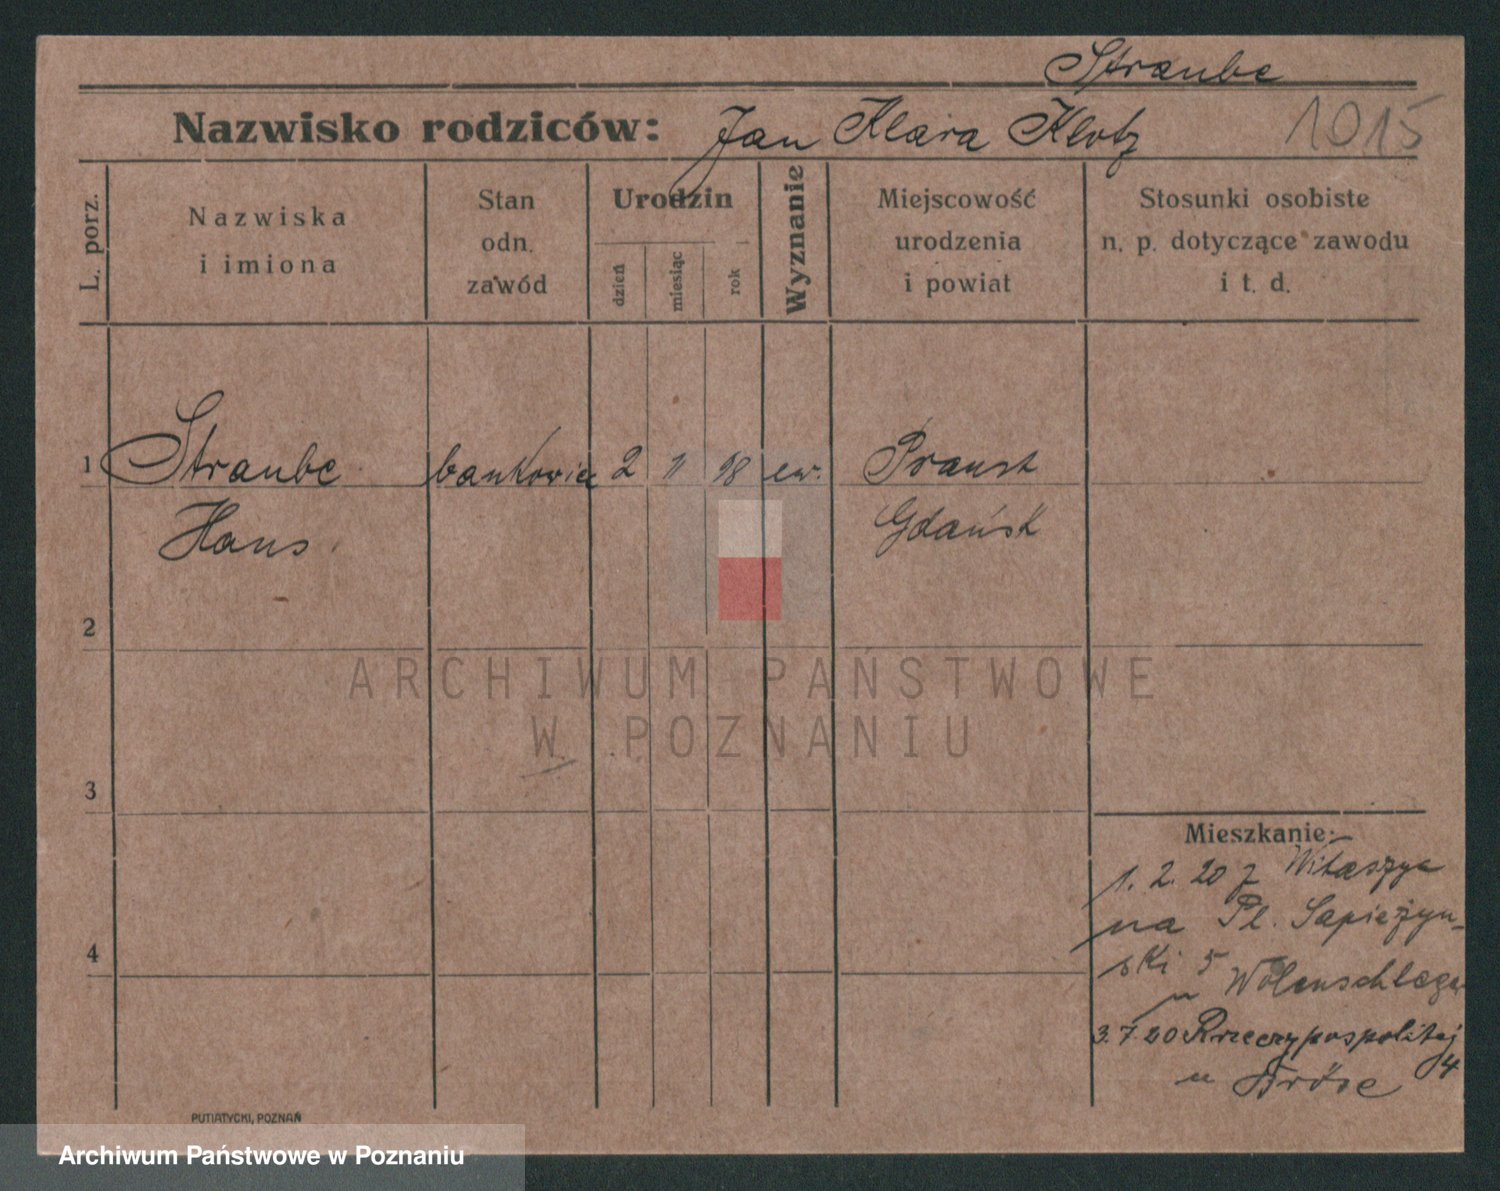 Straube
Nazwisko rodziców: Jan Klara Klotz 1015
L. porz.
Nazwiska
i imiona
Stan
odn.
zawód
Urodzin
dzień
miesiąc
rok
Wyznanie
Miejscowość
urodzenia
i powiat
Stosunki osobiste
n. p. dotyczące zawodu
i t. d.
1 Straube bankowiec 2 11 98 ew. Praust
Hans Gdańsk
2
3
4
Mieszkanie:
1. 2. 20 z Witaszyc
na Pl. Sapieżyń-
ski 5
u Wolenschlager
3.7.20 Rzeczypospolitej
4
u Bröse
PUTIATYCKI, POZNAŃ
ARCHIWUM PAŃSTWOWE
W POZNANIU
Archiwum Państwowe w Poznaniu